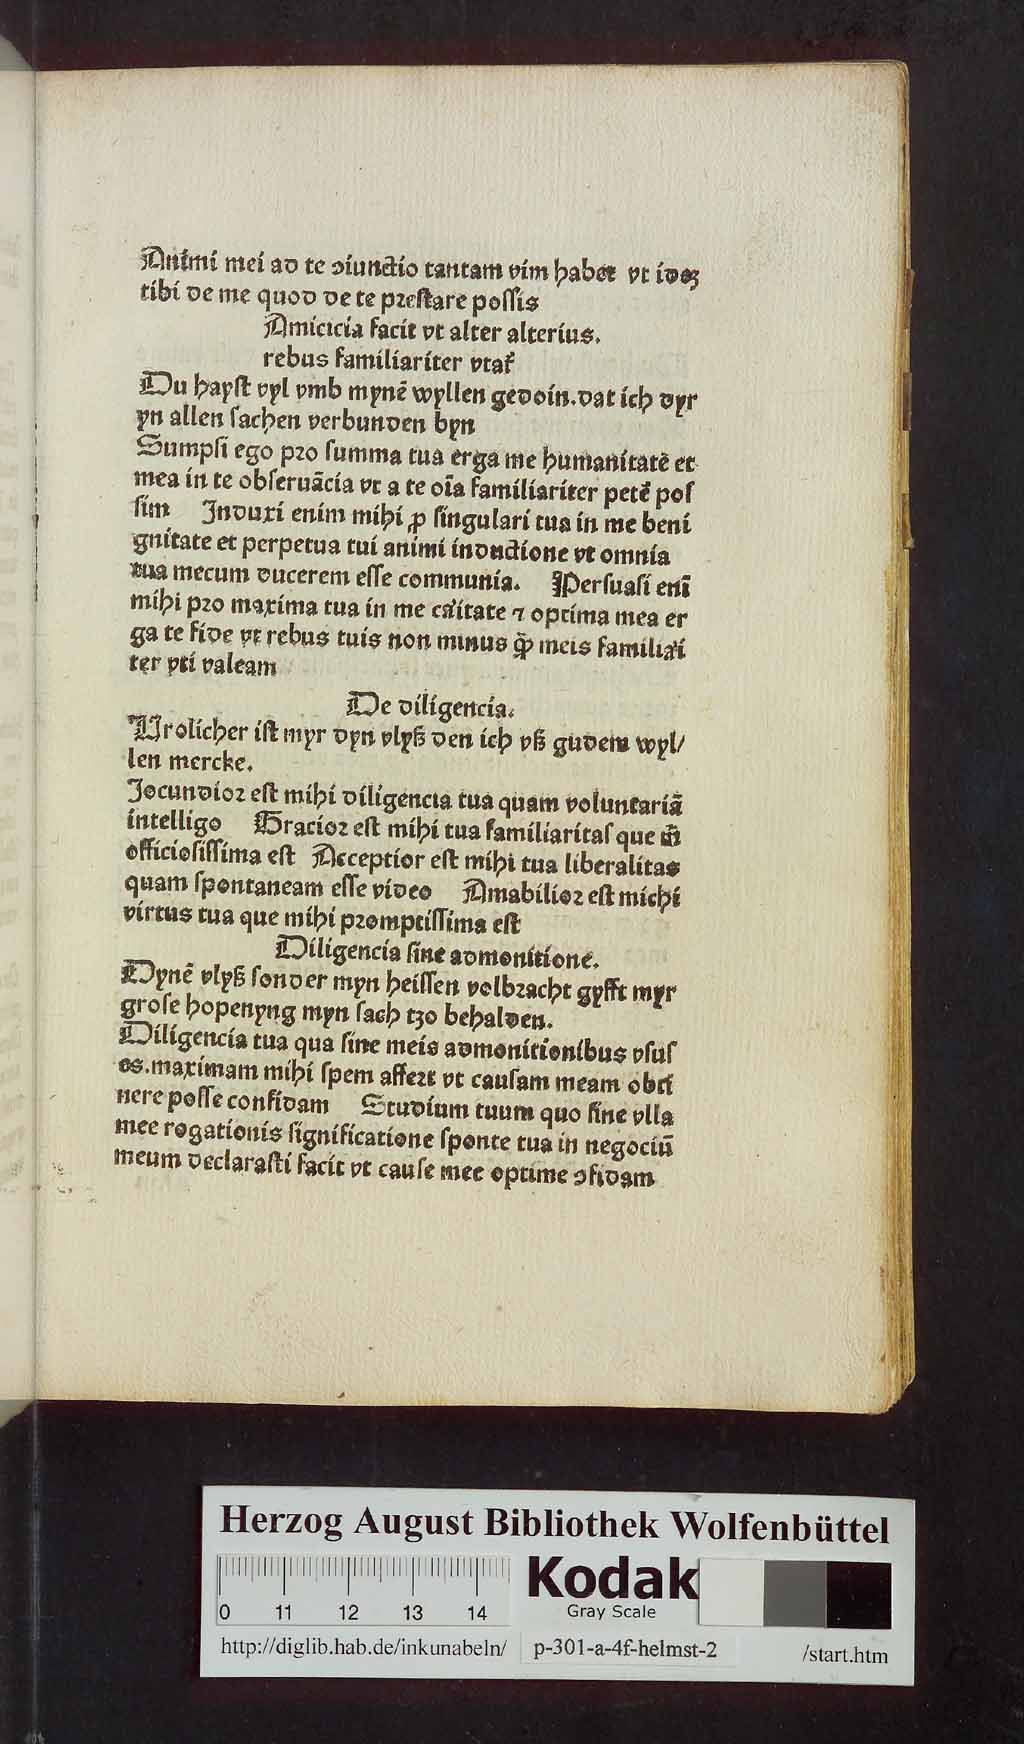 Animi mei ad te ↄiunctio tantam vim habet vt idēꝫ
tibi de me quod de te prestare possis
Amicicia facit vt alter alterius.
rebus familiariter vtat᷑
Du hayst vyl vmb mynē wyllen gedoin. dat ich dyr
yn allen sachen verbunden byn
Sumpsi ego pro summa tua erga me humanitatē et
mea in te obseruācia vt a te oīa familiariter petē pos
sim Induxi enim mihi ꝓ singulari tua in me beni
gnitate et perpetua tui animi inductione vt omnia
tua mecum ducerem esse communia. Persuasi enī
mihi pro maxima tua in me caritate ⁊ optima mea er
ga te fide vt rebus tuis non minus q̄ꝫ meis familiari
ter vti valeam
De diligencia.
Vrolicher ist myr dyn vlyß den ich vß gudem wyl/
len mercke.
Jocundior est mihi diligencia tua quam voluntariā
intelligo Gracior est mihi tua familiaritas que m̄
officiosissima est Acceptior est mihi tua liberalitas
quam spontaneam esse video Amabilior est michi
virtus tua que mihi promptissima est
Diligencia sine admonitione.
Dynē vlyß sonder myn heissen volbracht gyfft myr
grose hopenyng myn sach tzo behalden.
Diligencia tua qua sine meis admonitionibus vsus
es. maximam mihi spem affert vt causam meam obti
nere posse confidam Studium tuum quo sine vlla
mee rogationis significatione sponte tua in negociū
meum declarasti facit vt cause mee optime ↄfidam
Herzog August Bibliothek Wolfenbüttel
Kodak
Gray Scale
0 11 12 13 14
http://diglib.hab.de/inkunabeln/ p-301-a-4f-helmst-2 /start.htm